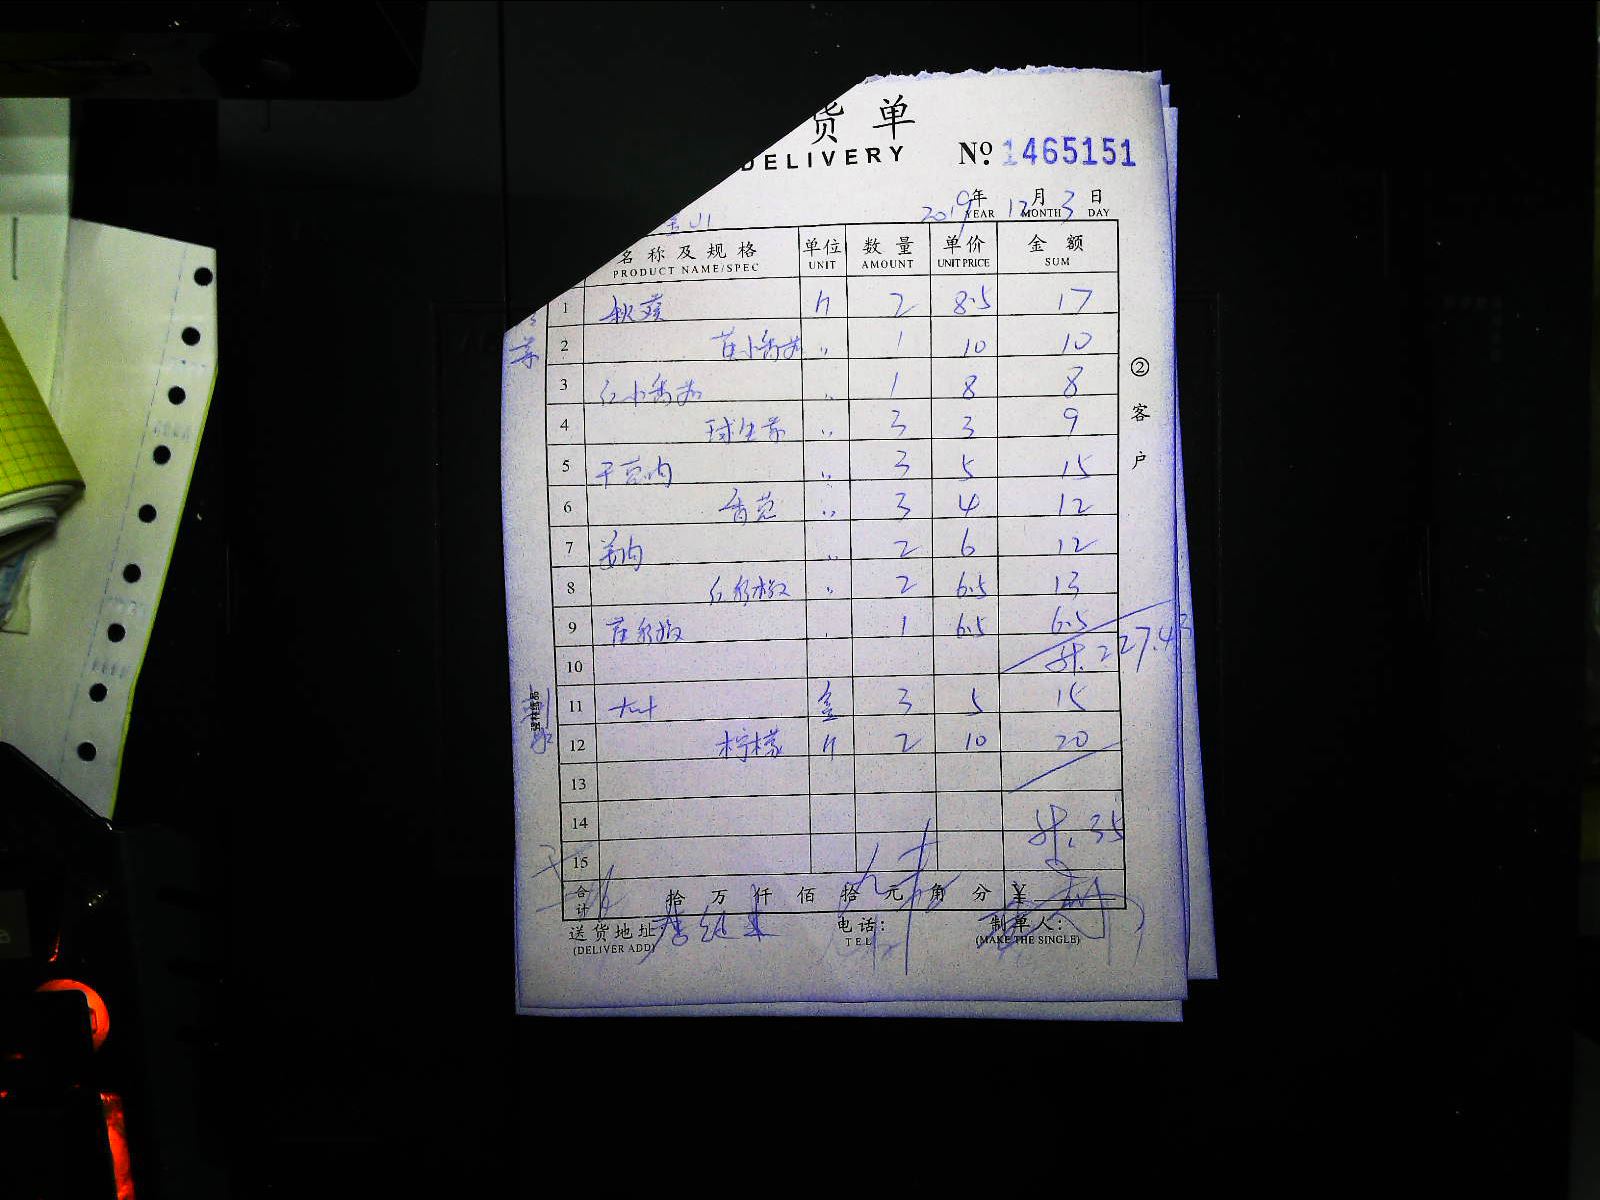 货单
DELIVERY № 1465151
2019年 YEAR 12月 MONTH 3日 DAY
名称及规格 PRODUCT NAME/SPEC 单位 UNIT 数量 AMOUNT 单价 UNIT PRICE 金额 SUM
1 秋葵 2 8.5 17
2 1 10 10
3 红小番茄 1 8 8
4 球生菜 3 3 9
5 3 5 15
6 3 4 12
7 姜肉 2 6 12
8 红彩椒 2 6.5 13
9 1 6.5 6.5
10
11 盒 3 5 15
12 柠檬 2 10 20
13
14 35
15
合计 拾万仟佰拾元角分 ¥
送货地址 (DELIVER ADD) 电话: TEL 制单人: (MAKE THE SINGLE)
②客户